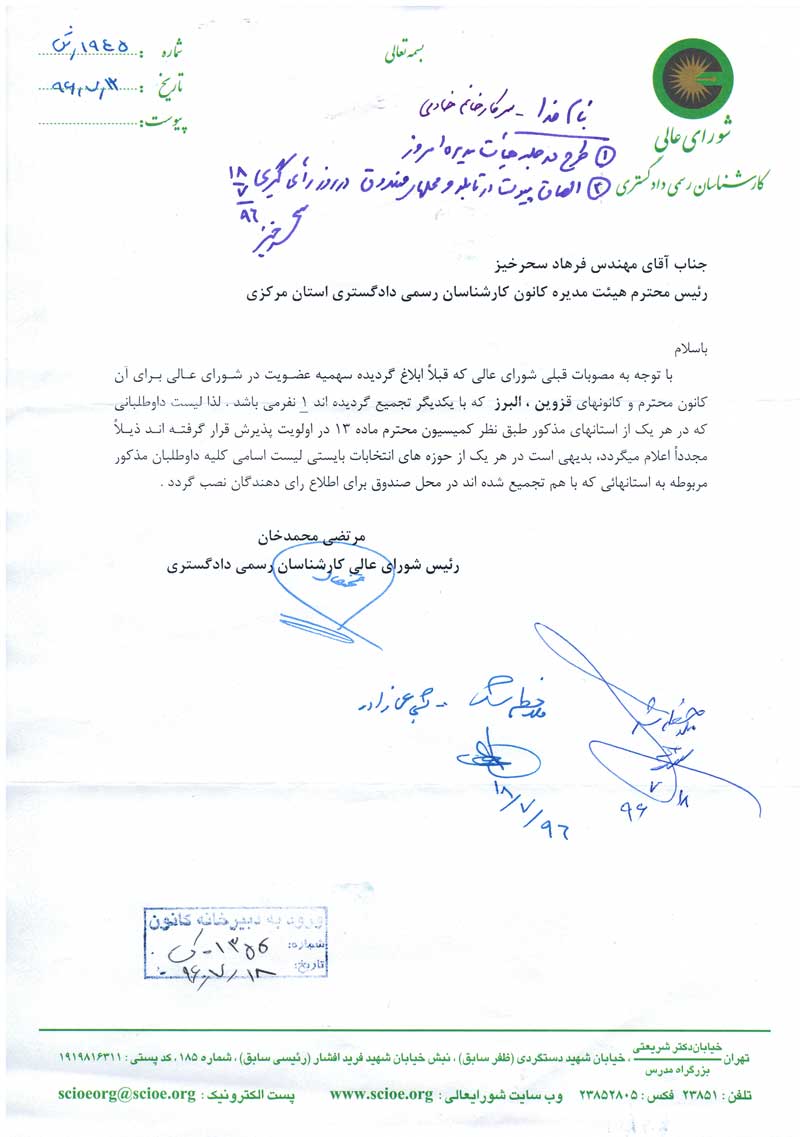 بسمه تعالی
شماره : ۱۹۴۵ر ش
تاریخ : ۹۶٫۷٫۱۲
پیوست :
شورای عالی
کارشناسان رسمی دادگستری
بنام خدا - سرکار خانم
① طرح در جلسه هیأت مدیره امروز
② الصاق پیوست در تابلو و محلهای صندوق در روز رأی گیری
۱۸/۷/۹۶
سحرخیز
جناب آقای مهندس فرهاد سحرخیز
رئیس محترم هیئت مدیره کانون کارشناسان رسمی دادگستری استان مرکزی
باسلام
با توجه به مصوبات قبلی شورای عالی که قبلاً ابلاغ گردیده سهمیه عضویت در شورای عـالی بـرای آن
کانون محترم و کانونهای قزوین ، البرز که با یکدیگر تجمیع گردیده اند ۱ نفرمی باشد . لذا لیست داوطلبانی
که در هر یک از استانهای مذکور طبق نظر کمیسیون محترم ماده ۱۳ در اولویت پذیرش قرار گرفتـه انـد ذیـلاً
مجدداً اعلام میگردد، بدیهی است در هر یک از حوزه های انتخابات بایستی لیست اسامی کلیه داوطلبان مذکور
مربوطه به استانهائی که با هم تجمیع شده اند در محل صندوق برای اطلاع رای دهندگان نصب گردد .
مرتضی محمدخان
رئیس شورای عالی کارشناسان رسمی دادگستری
ملاحظه شد
ملاحظه شد
۱۸/۷/۹۶
۱۸ ۷ ۹۶
ورود به دبیرخانه کانون
شماره: ۱۳۵۶-ک
تاریخ: ۹۶٫۷٫۱۸
تهران خیابان دکتر شریعتی / بزرگراه مدرس ، خیابان شهید دستگردی (ظفر سابق) ، نبش خیابان شهید فرید افشار (رئیسی سابق) ، شماره ۱۸۵ ، کد پستی : ۱۹۱۹۸۱۶۳۱۱
تلفن : ۲۳۸۵۱ فکس : ۲۳۸۵۲۸۰۵ وب سایت شورایعالی : www.scioe.org پست الکترونیک : scioeorg@scioe.org